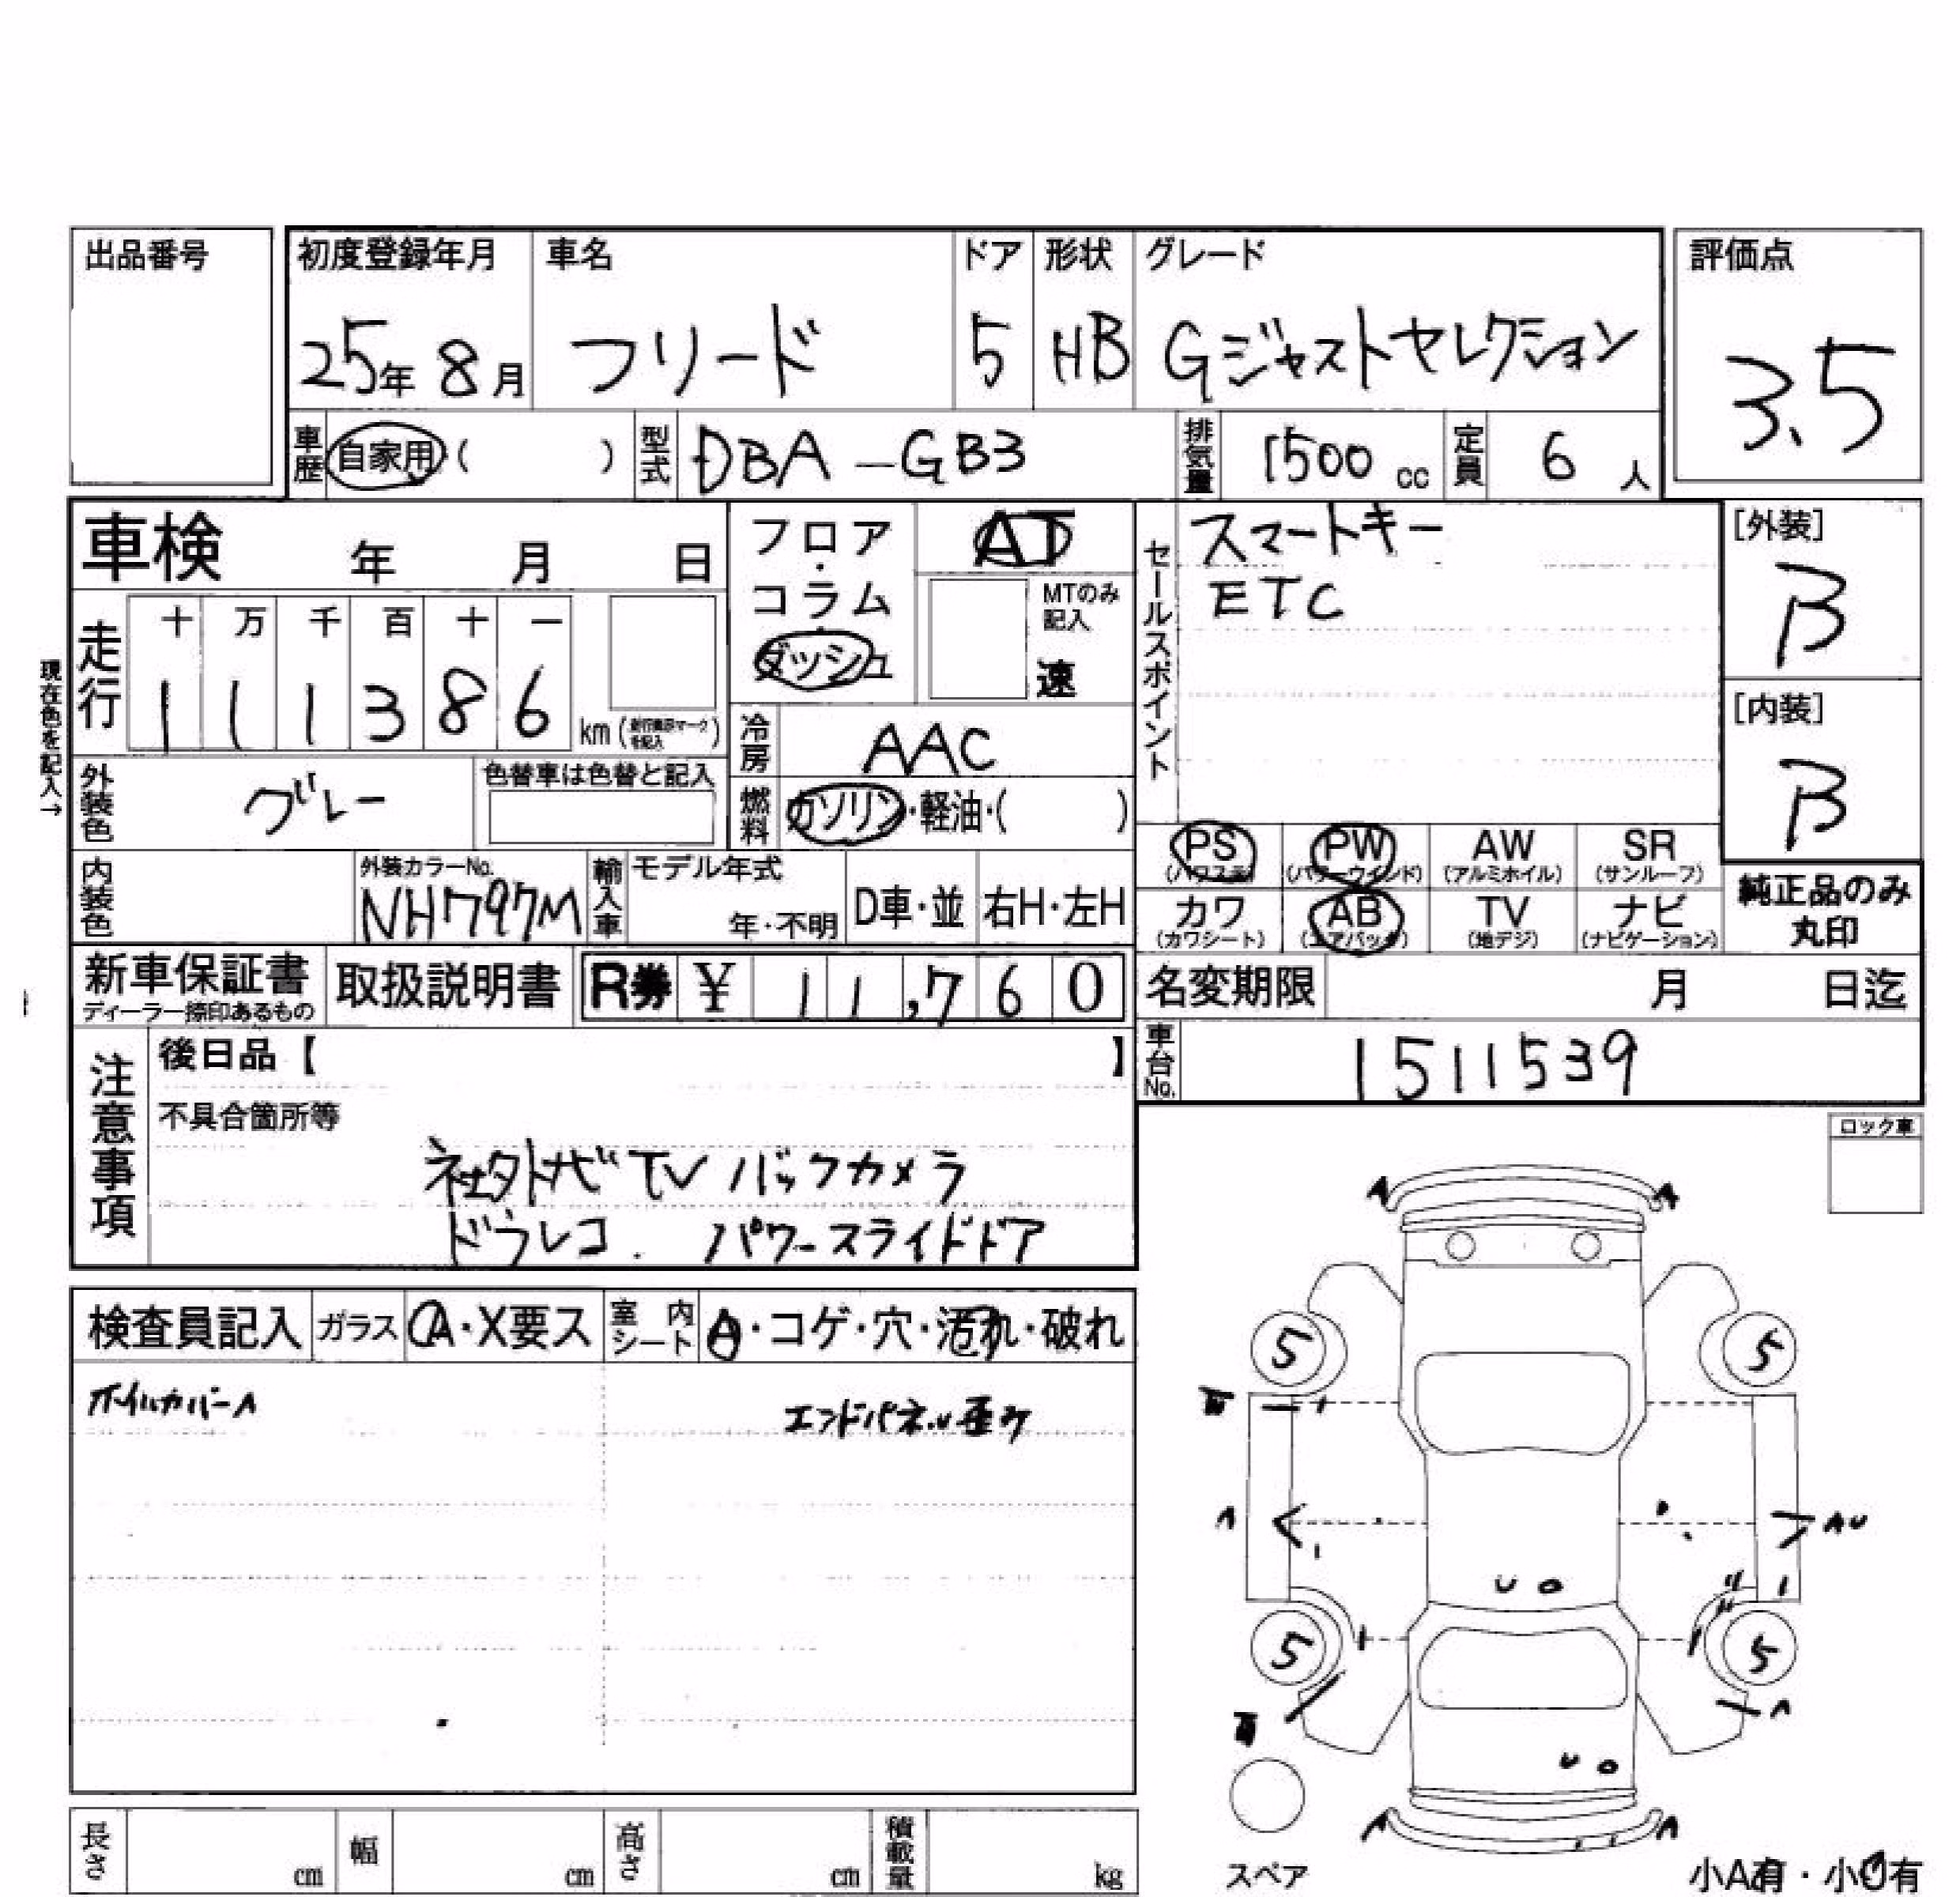 出品番号
初度登録年月 車名 ドア 形状 グレード 評価点
25年 8月 フリード 5 HB Gジャストセレクション 3.5
車歴 自家用 ( ) 型式 DBA-GB3 排気量 1500 cc 定員 6 人
車検 年 月 日
フロア・コラム・ダッシュ AT
MTのみ記入 速
セールスポイント スマートキー
ETC
[外装] B
[内装] B
現在色を記入→
走行 十 万 千 百 十 一
1 1 1 3 8 6 km
冷房 AAC
外装色 グレー 色替車は色替と記入
燃料 ガソリン・軽油・( )
PS (パワステ) PW (パワーウインド) AW (アルミホイル) SR (サンルーフ)
カワ (カワシート) AB (エアバッグ) TV (地デジ) ナビ (ナビゲーション)
純正品のみ丸印
内装色 外装カラーNo. NH797M 輸入車 モデル年式 年・不明 D車・並 右H・左H
新車保証書 ディーラー捺印あるもの 取扱説明書 R券 ¥ 11,760
名変期限 月 日迄
車台No. 1511539
注意事項 後日品【 】
不具合箇所等
社外ナビ TV バックカメラ
ドラレコ. パワースライドドア
ロック車
検査員記入 ガラス A・X要ス 室内シート A・コゲ・穴・汚れ・破れ
ホイルカバーA エンドパネル歪み
A A
5 5
A AU
U
5 5
A
U
A A
スペア
小A有・小U有
長さ cm 幅 cm 高さ cm 積載量 kg